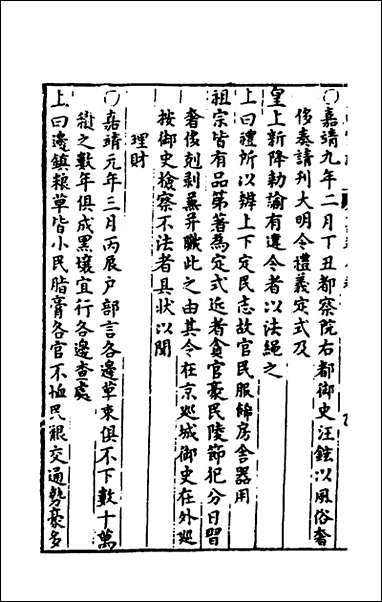 ○嘉靖九年二月丁丑都察院右都御史汪鋐以風俗奢
侈奏請刊大明令禮義定式及
皇上新降勅諭有違令者以法繩之
上曰禮所以辨上下定民志故官民服飾房舍器用
祖宗皆有品第著為定式近者貪官豪民陵節犯分日習
奢侈剋剥蒹并職此之由其令在京廵城御史在外廵
按御史檢察不法者具狀以聞
理財
○嘉靖元年三月丙辰户部言各邊草束俱不下數十萬
積之數年俱成黑壤宜行各邊查處
上曰邊鎮糧草皆小民脂膏各官不恤民艱交通勢豪多